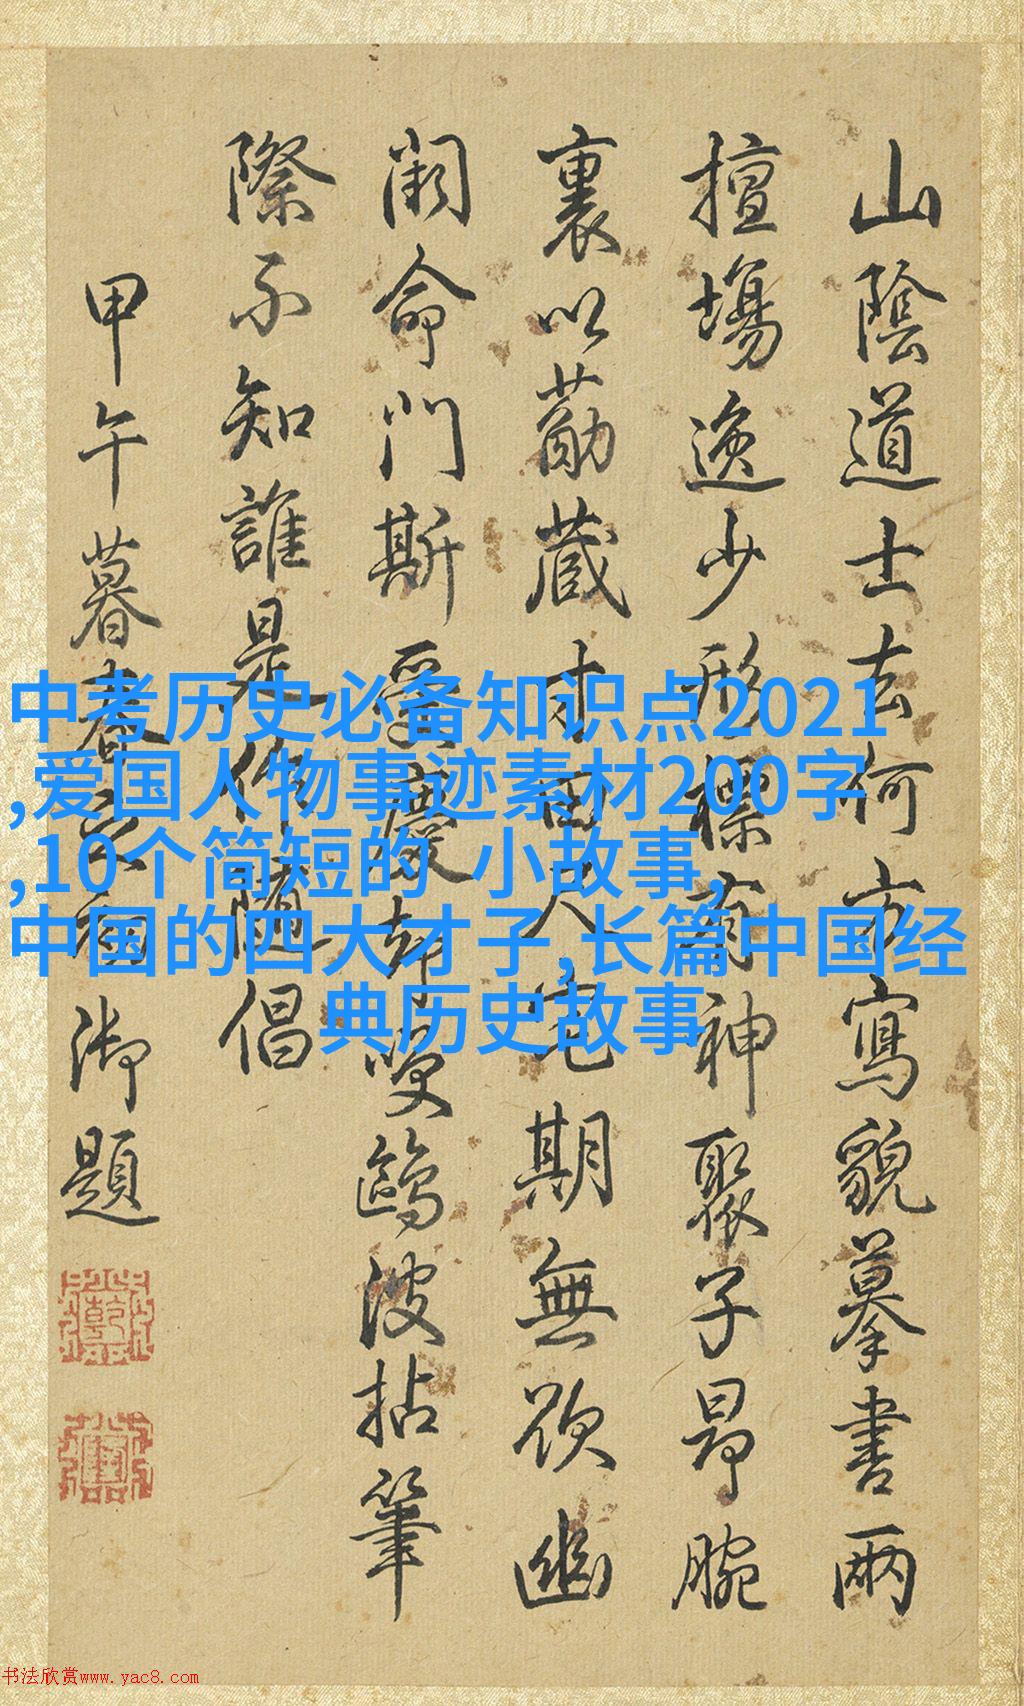 山陰道士去何方寫貌摹書兩
擅場逸少形標有神聚子昂腕
裏以筋藏寸田尺宅期無欲幽
闕命門斯受慶却咲鷗波拈筆
際不知誰是作隨倡
甲午暮春之初御題
中考历史必备知识点2021
,爱国人物事迹素材200字
,10个简短的 小故事,
中国的四大才子,长篇中国经
典历史故事
书法欣赏www.yac8.com